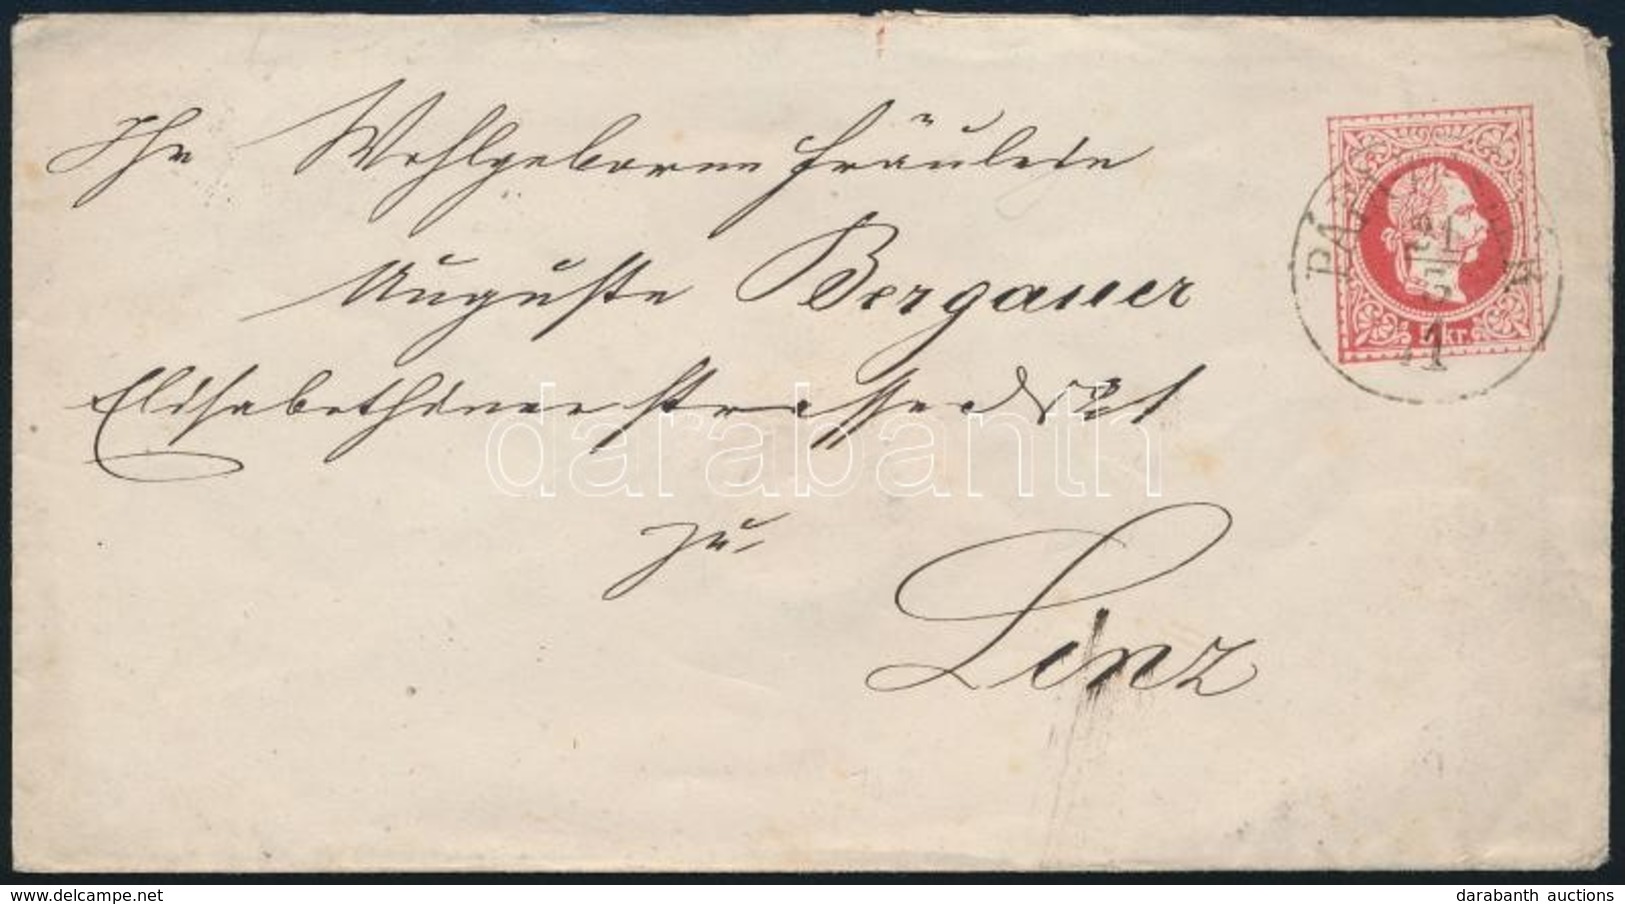 Ihr Wohlgeboren Fräulein
Auguste Bergauer
Elisabethinenstrasse
zu
Linz
kr.
71
darabanth
www.delcampe.net
darabanth auctions